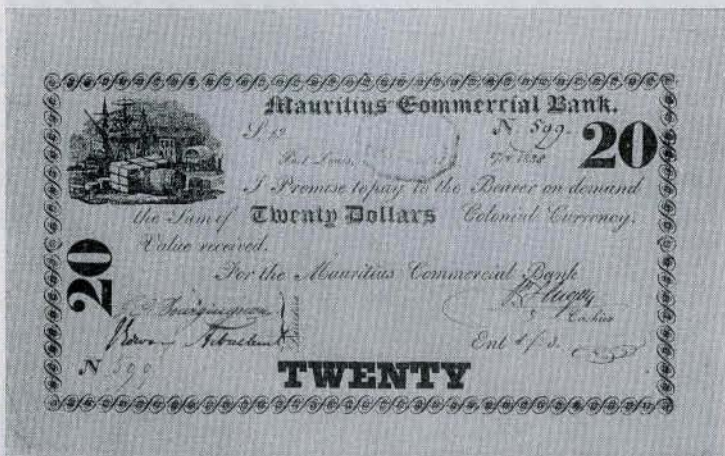 Mauritius Commercial Bank.
N 599.
20
Port Louis, 1838
I Promise to pay to the Bearer on demand
the Sum of Twenty Dollars Colonial Currency.
Value received.
20
For the Mauritius Commercial Bank
Cashier
Directors
Entd. f. 3.
N 599
TWENTY